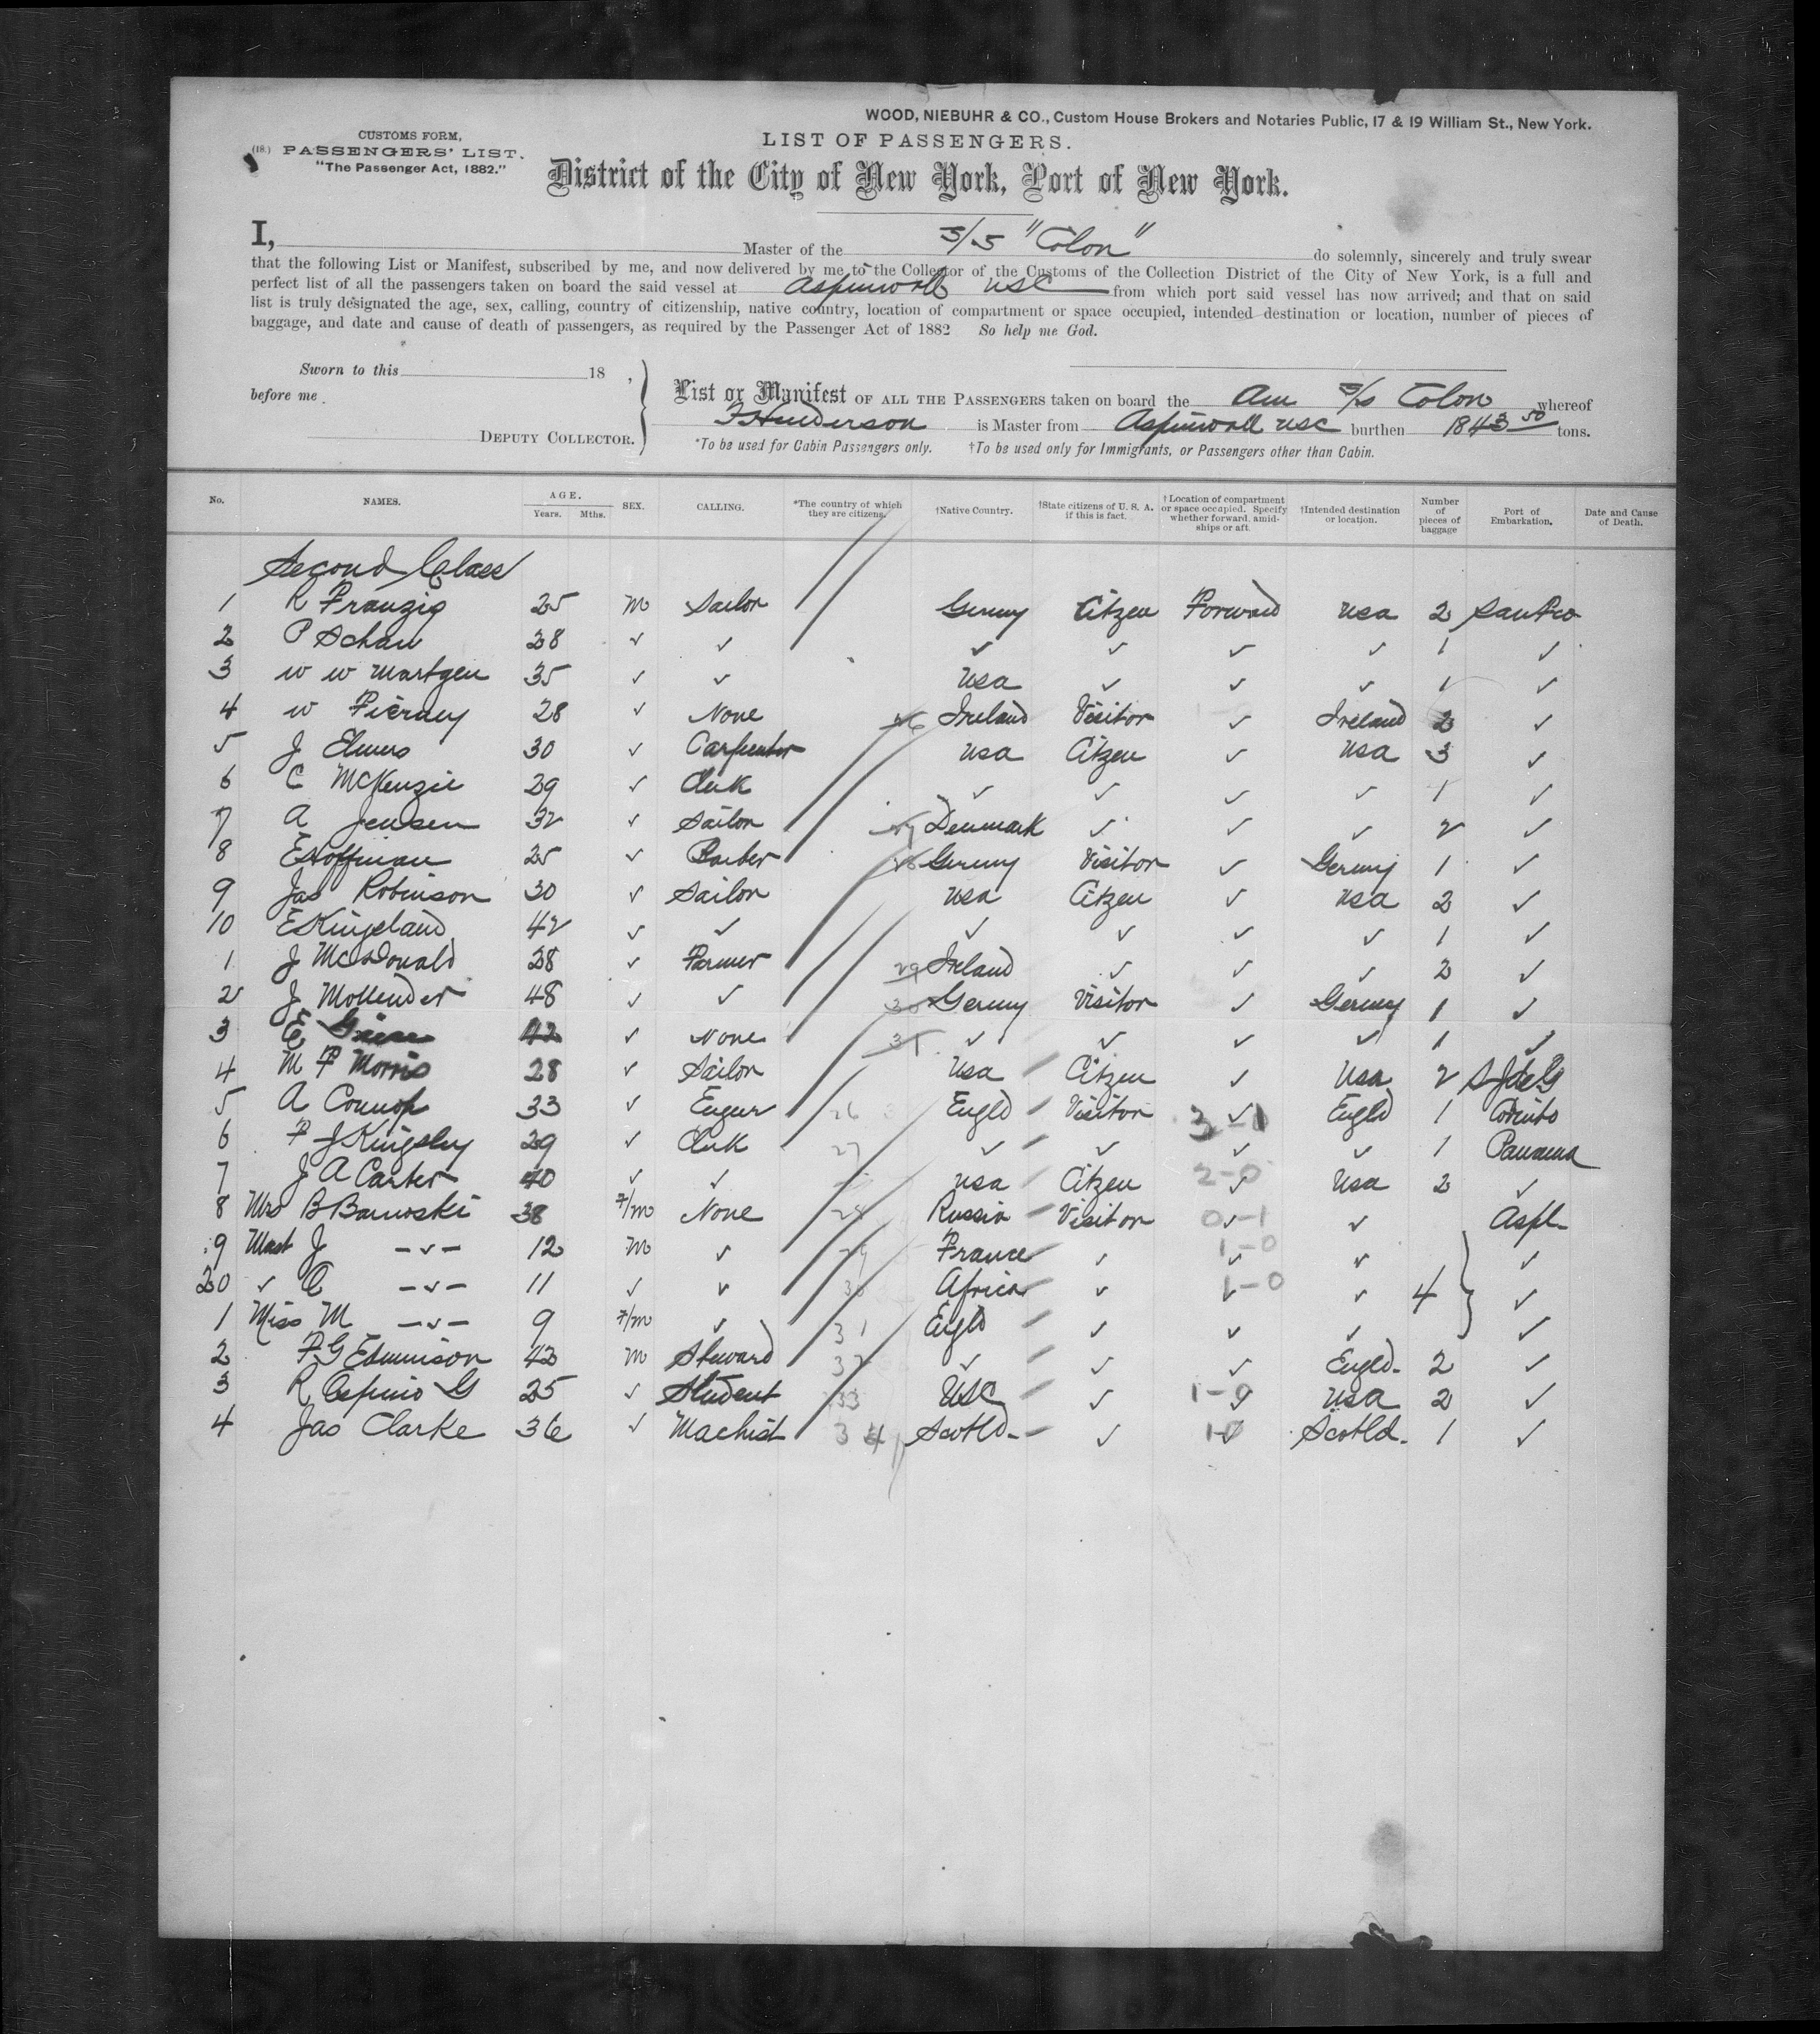 WOOD, NIEBUHR & CO., Custom House Brokers and Notaries Public, 17 & 19 William St., New York.
CUSTOMS FORM,
(18.) PASSENGERS' LIST.
"The Passenger Act, 1882."
LIST OF PASSENGERS.
District of the City of New York, Port of New York.
I, Master of the S/S "Colon" do solemnly, sincerely and truly swear
that the following List or Manifest, subscribed by me, and now delivered by me to the Collector of the Customs of the Collection District of the City of New York, is a full and
perfect list of all the passengers taken on board the said vessel at Aspinwall USC from which port said vessel has now arrived; and that on said
list is truly designated the age, sex, calling, country of citizenship, native country, location of compartment or space occupied, intended destination or location, number of pieces of
baggage, and date and cause of death of passengers, as required by the Passenger Act of 1882 So help me God.
Sworn to this 18 ,
before me
DEPUTY COLLECTOR.
List or Manifest OF ALL THE PASSENGERS taken on board the Am S/S Colon whereof
Henderson is Master from Aspinwall USC burthen 1843 50 tons.
*To be used for Cabin Passengers only. †To be used only for Immigrants, or Passengers other than Cabin.
No. NAMES. AGE. Years. Mths. SEX. CALLING. *The country of which they are citizens. †Native Country. †State citizens of U. S. A. if this is fact. †Location of compartment or space occupied. Specify whether forward, amidships or aft. †Intended destination or location. Number of pieces of baggage Port of Embarkation. Date and Cause of Death.
Second Class
1 R Franzig 25 M Sailor Germy Citzen Forward USA 2 San Fco
2 P Schau 28 ✓ ✓ ✓ ✓ ✓ ✓ 1 ✓
3 W W Martgen 35 ✓ ✓ USA ✓ ✓ ✓ 1 ✓
4 W Fierney 28 ✓ None Ireland Visitor ✓ Ireland 2 ✓
5 J Elmers 30 ✓ Carpenter USA Citzen ✓ USA 3 ✓
6 C McKenzie 29 ✓ Clerk ✓ ✓ ✓ ✓ 1 ✓
7 A Jensen 32 ✓ Sailor Denmark ✓ ✓ ✓ 2 ✓
8 E Hoffman 25 ✓ Barber Germy Visitor ✓ Germy 1 ✓
9 Jas Robinson 30 ✓ Sailor USA Citzen ✓ USA 2 ✓
10 E Kingsland 42 ✓ ✓ ✓ ✓ ✓ ✓ 1 ✓
1 J McDonald 28 ✓ Farmer 29 Ireland ✓ ✓ ✓ 2 ✓
2 J Mollender 48 ✓ ✓ 30 Germy Visitor ✓ Germy 1 ✓
3 E 42 ✓ None 31 ✓ ✓ ✓ ✓ 1 ✓
4 M F Morris 28 ✓ Sailor USA Citzen ✓ USA 2 S J de G
5 A Connop 33 ✓ Enger 26 Engld Visitor 3-1 ✓ Engld 1 Corinto
6 F J Kingsley 29 ✓ Clerk 27 ✓ ✓ ✓ ✓ 1 Panama
7 J A Carter 40 ✓ ✓ USA Citzen 2-0 ✓ USA 2 ✓
8 Mrs B Barnoski 38 F/m None 28 Russia Visitor 0-1 ✓ ✓ Aspl
9 Mast J -✓- 12 M ✓ 29 France ✓ 1-0 ✓ ✓ ✓
20 ✓ C -✓- 11 ✓ ✓ 30 Africa ✓ 1-0 ✓ ✓ 4 ✓
1 Miss M -✓- 9 F/m ✓ 31 Engld ✓ ✓ ✓ ✓
2 F G Edmnison 42 M Steward 32 ✓ ✓ ✓ Engld 2 ✓
3 R Cespino G 25 ✓ Student 33 USC ✓ 1-0 ✓ USA 2 ✓
4 Jas Clarke 36 ✓ Machist 34 Scotld ✓ 1-0 ✓ Scotld. 1 ✓